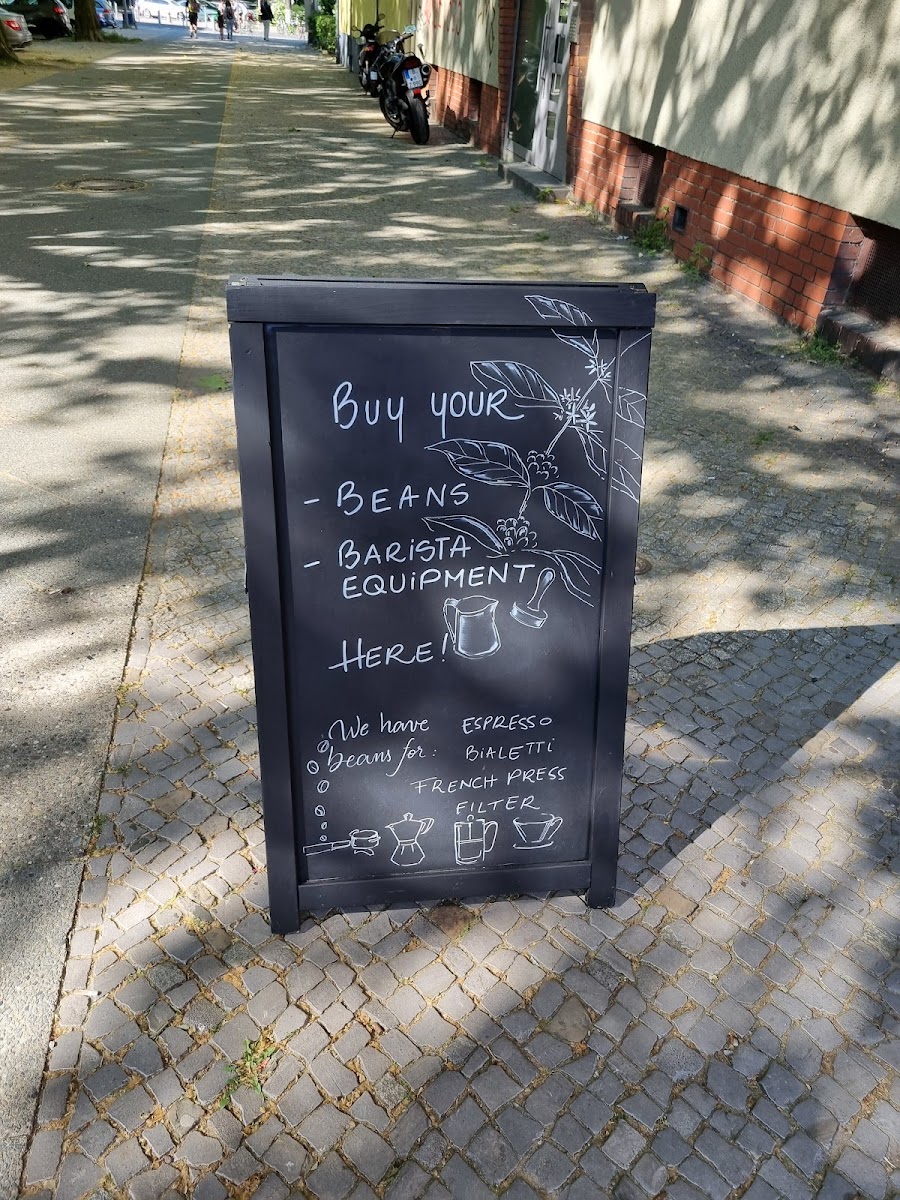 Buy your
- BEANS
- BARiSTA
EQUiPMENT
HERE!
We have ESPRESSO
beans for: BiALETTi
FRENCH PRESS
FILTER